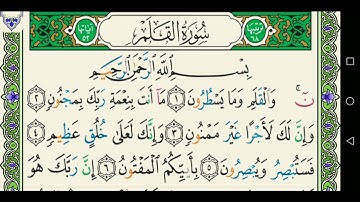 ترتيبها ٦٨ سُورَةُ الْقَلَمِ آياتها ٥٢
بِسْمِ اللَّهِ الرَّحْمَٰنِ الرَّحِيمِ
نٓ ۚ وَالْقَلَمِ وَمَا يَسْطُرُونَ ﴿١﴾ مَآ أَنتَ بِنِعْمَةِ رَبِّكَ بِمَجْنُونٍ ﴿٢﴾
وَإِنَّ لَكَ لَأَجْرًا غَيْرَ مَمْنُونٍ ﴿٣﴾ وَإِنَّكَ لَعَلَىٰ خُلُقٍ عَظِيمٍ ﴿٤﴾
فَسَتُبْصِرُ وَيُبْصِرُونَ ﴿٥﴾ بِأَييِّكُمُ الْمَفْتُونُ ﴿٦﴾ إِنَّ رَبَّكَ هُوَ